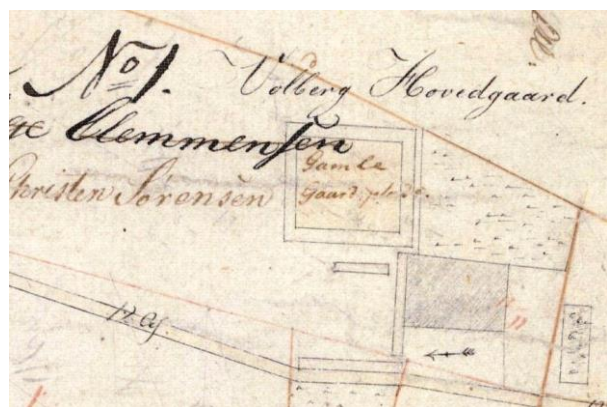 No 1. Volberg Hovedgaard.
Clemmensen
Christen Sørensen
Gamle
Gaardsplads.